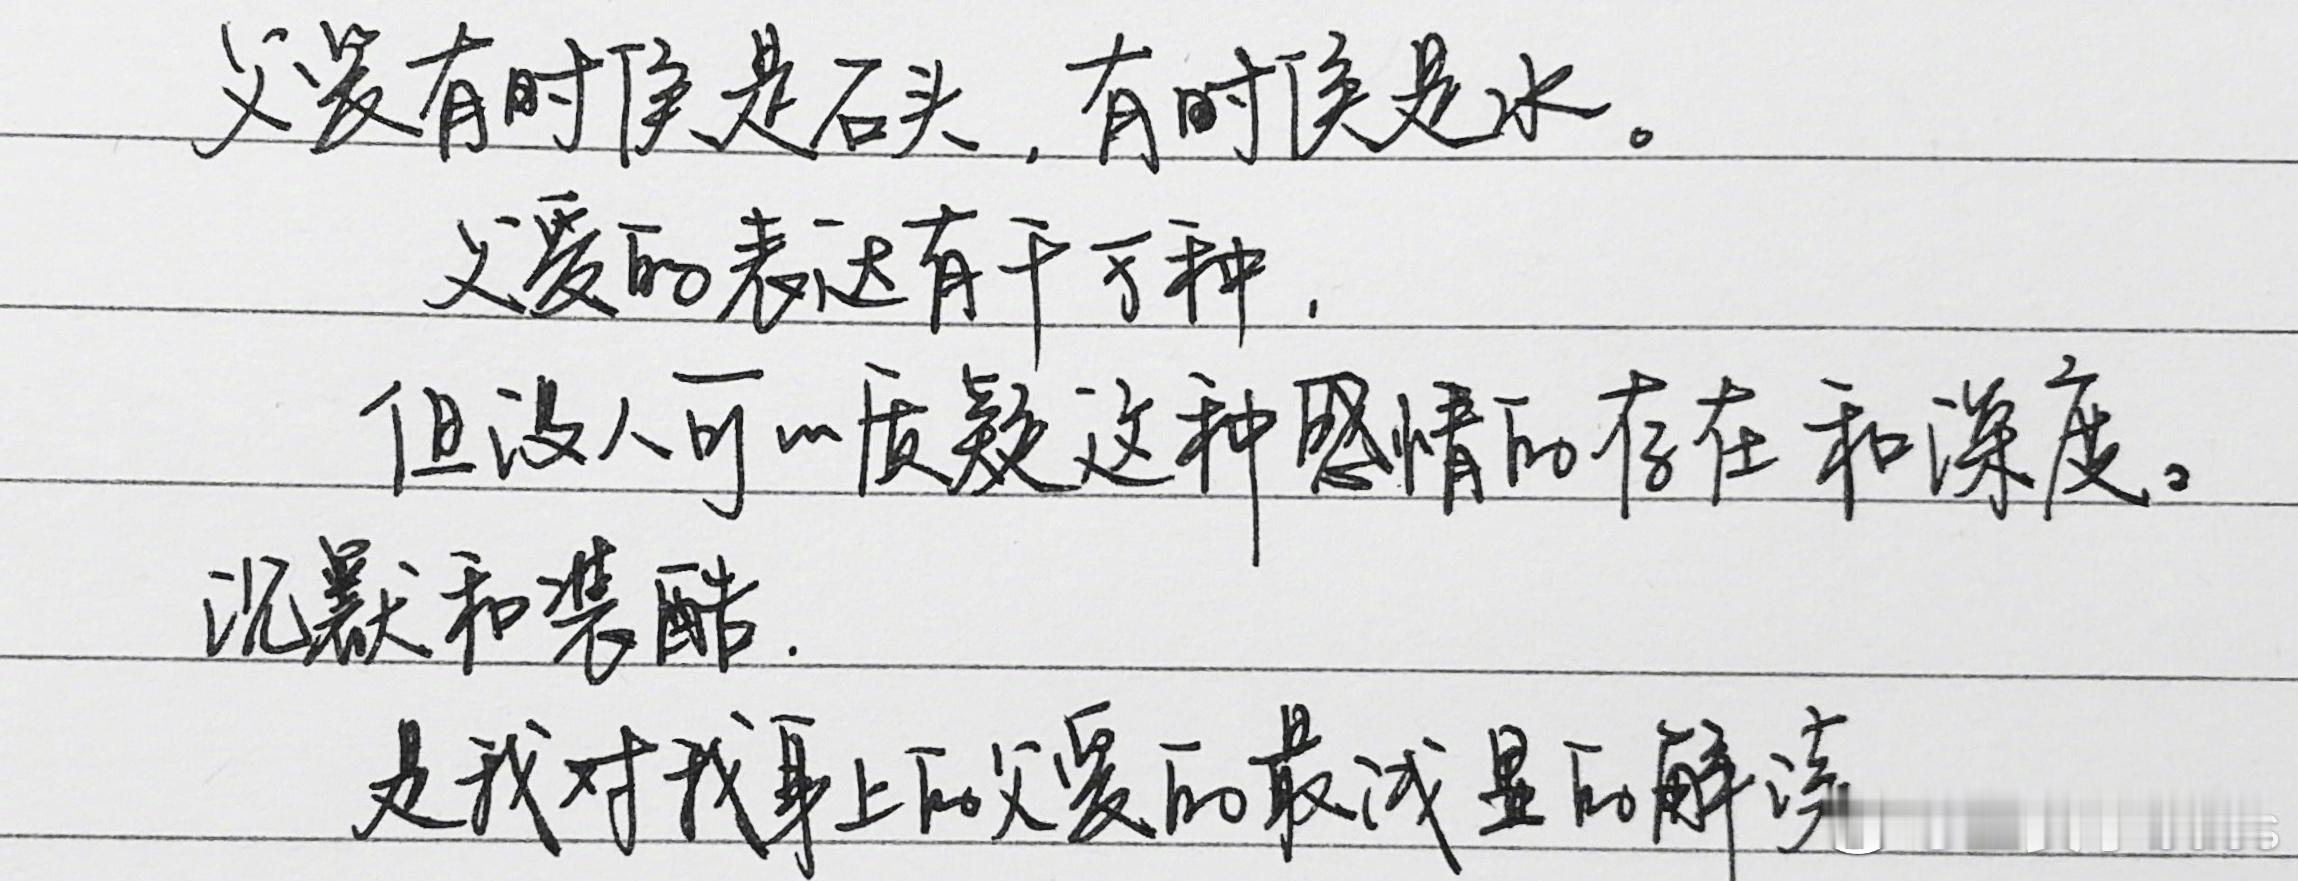 父爱有时候是石头，有时候是水。
父爱的表达有千万种，
但没人可以质疑这种感情的存在和深度。
沉默和装酷.
是我对我身上的父爱的最浅显的解读